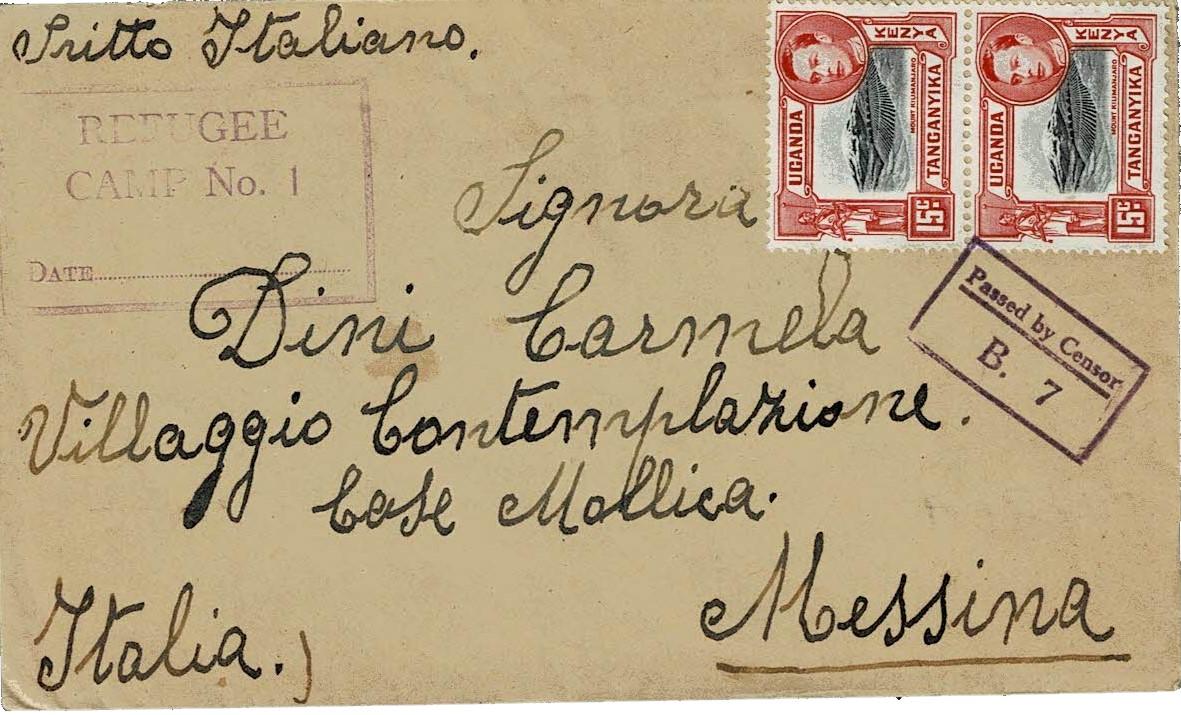 Sritto Italiano.
REFUGEE
CAMP No. 1
DATE
KENYA
UGANDA
TANGANYIKA
MOUNT KILIMANJARO
15c
KENYA
UGANDA
TANGANYIKA
MOUNT KILIMANJARO
15c
Passed by Censor
B. 7
Signora
Dini Carmela
Villaggio Contemplazione.
Case Mollica.
Messina
Italia.)